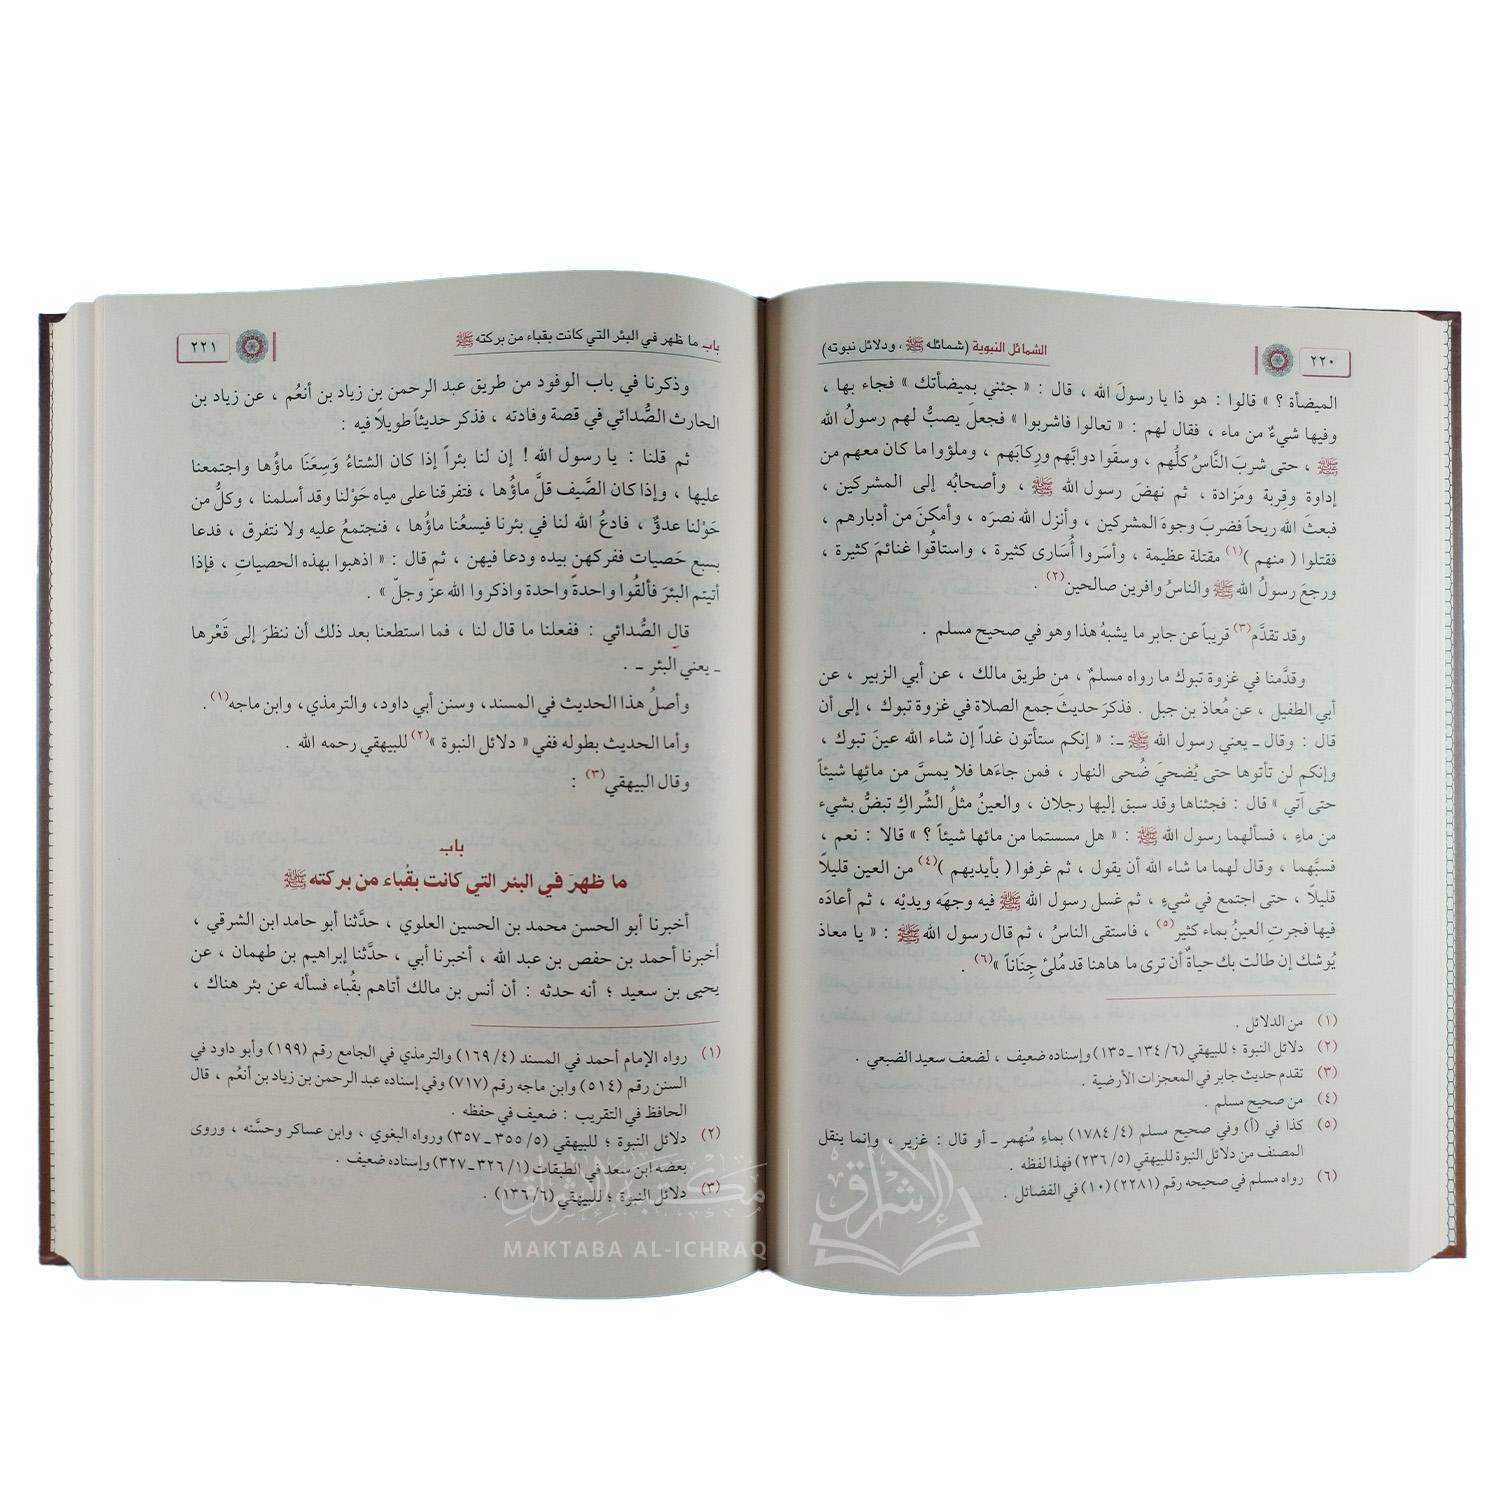 ٢٢٠
الشمائل النبوية (شمائله ﷺ ، ودلائل نبوته)
الميضأة ؟ » قالوا : هو ذا يا رسولَ الله ، قال : « جئني بميضأتك » فجاء بها ،
وفيها شيءٌ من ماء ، فقال لهم : « تعالوا فاشربوا » فجعلَ يصبُّ لهم رسولُ الله
ﷺ ، حتى شربَ النَّاسُ كلُّهم ، وسقَوا دوابَّهم ورِكابَهم ، وملؤوا ما كان معهم من
إداوة وقِربة ومَزادة ، ثم نهضَ رسول الله ﷺ ، وأصحابُه إلى المشركين ،
فبعثَ الله ريحاً فضربَ وجوهَ المشركين ، وأنزل الله نصرَه ، وأمكنَ من أدبارهم ،
فقتلوا ( منهم )(١) مقتلة عظيمة ، وأسَروا أُسَارى كثيرة ، واستاقُوا غنائمَ كثيرة ،
ورجعَ رسولُ الله ﷺ والناسُ وافرين صالحين(٢) .
وقد تقدَّم(٣) قريباً عن جابر ما يشبهُ هذا وهو في صحيح مسلم .
وقدَّمنا في غزوة تبوك ما رواه مسلمٌ ، من طريق مالك ، عن أبي الزبير ، عن
أبي الطفيل ، عن مُعاذ بن جبل . فذكرَ حديثَ جمع الصلاة في غزوة تبوك ، إلى أن
قال : وقال ـ يعني رسول الله ﷺ ـ: « إنكم ستأتون غداً إن شاء الله عينَ تبوك ،
وإنكم لن تأتوها حتى يُضحيَ ضُحى النهار ، فمن جاءَها فلا يمسَّ من مائِها شيئاً
حتى آتي » قال : فجئناها وقد سبق إليها رجلان ، والعينُ مثلُ الشِّراكِ تبضُّ بشيء
من ماءٍ ، فسألهما رسول الله ﷺ : « هل مسستما من مائها شيئاً ؟ » قالا : نعم ،
فسبَّهما ، وقال لهما ما شاء الله أن يقول ، ثم غرفوا ( بأيديهم )(٤) من العين قليلًا
قليلًا ، حتى اجتمع في شيءٍ ، ثم غسل رسول الله ﷺ فيه وجهَه ويديْه ، ثم أعادَه
فيها فجرتِ العينُ بماء كثير(٥) ، فاستقى الناسُ ، ثم قال رسول الله ﷺ : « يا معاذ
يُوشك إن طالت بك حياةٌ أن ترى ما هاهنا قد مُلئ جِنَاناً »(٦) .
(١) من الدلائل .
(٢) دلائل النبوة ؛ للبيهقي (٦/ ١٣٤ ـ ١٣٥) وإسناده ضعيف ، لضعف سعيد الضبعي .
(٣) تقدم حديث جابر في المعجزات الأرضية .
(٤) من صحيح مسلم .
(٥) كذا في (أ) وفي صحيح مسلم (٤/ ١٧٨٤) بماءٍ مُنهمر ـ أو قال : غزير ، وإنما ينقل
المصنف من دلائل النبوة للبيهقي (٥/ ٢٣٦) فهذا لفظه .
(٦) رواه مسلم في صحيحه رقم (٢٢٨١) (١٠) في الفضائل .
باب ما ظهر في البئر التي كانت بقباء من بركته ﷺ
٢٢١
وذكرنا في باب الوفود من طريق عبد الرحمن بن زياد بن أنعُم ، عن زياد بن
الحارث الصُّدائي في قصة وفادته ، فذكر حديثاً طويلًا فيه :
ثم قلنا : يا رسول الله ! إن لنا بئراً إذا كان الشتاءُ وَسِعَنَا ماؤُها واجتمعنا
عليها ، وإذا كان الصَّيف قلَّ ماؤُها ، فتفرقنا على مياه حَوْلنا وقد أسلمنا ، وكلُّ من
حَوْلنا عدوٌّ ، فادعُ الله لنا في بئرنا فيسعُنا ماؤُها ، فنجتمعُ عليه ولا نتفرق ، فدعا
بسبع حَصيات ففركهن بيده ودعا فيهن ، ثم قال : « اذهبوا بهذه الحصياتِ ، فإذا
أتيتم البئرَ فألقُوا واحدةً واحدة واذكروا الله عزّ وجلّ » .
قال الصُّدائي : ففعلنا ما قال لنا ، فما استطعنا بعد ذلك أن ننظرَ إلى قَعْرها
ـ يعني البئر ـ .
وأصلُ هذا الحديث في المسند، وسنن أبي داود، والترمذي، وابن ماجه(١).
وأما الحديث بطوله ففي « دلائل النبوة »(٢) للبيهقي رحمه الله .
وقال البيهقي(٣) :
باب
ما ظهرَ في البئر التي كانت بقُباء من بركته ﷺ
أخبرنا أبو الحسن محمد بن الحسين العلوي ، حدَّثنا أبو حامد ابن الشرقي ،
أخبرنا أحمد بن حفص بن عبد الله ، أخبرنا أبي ، حدَّثنا إبراهيم بن طهمان ، عن
يحيى بن سعيد ؛ أنه حدثه : أن أنس بن مالك أتاهم بقُباء فسأله عن بئر هناك ،
(١) رواه الإمام أحمد في المسند (٤/ ١٦٩) والترمذي في الجامع رقم (١٩٩) وأبو داود في
السنن رقم (٥١٤) وابن ماجه رقم (٧١٧) وفي إسناده عبد الرحمن بن زياد بن أنعُم ، قال
الحافظ في التقريب : ضعيف في حفظه .
(٢) دلائل النبوة ؛ للبيهقي (٥/ ٣٥٥ ـ ٣٥٧) ورواه البغوي ، وابن عساكر وحسَّنه ، وروى
بعضه ابن سعد في الطبقات (١/ ٣٢٦ ـ ٣٢٧) وإسناده ضعيف .
(٣) دلائل النبوة ؛ للبيهقي (٦/ ١٣٦) .
مكتبة الإشراق
MAKTABA AL-ICHRAQ
الإشراق